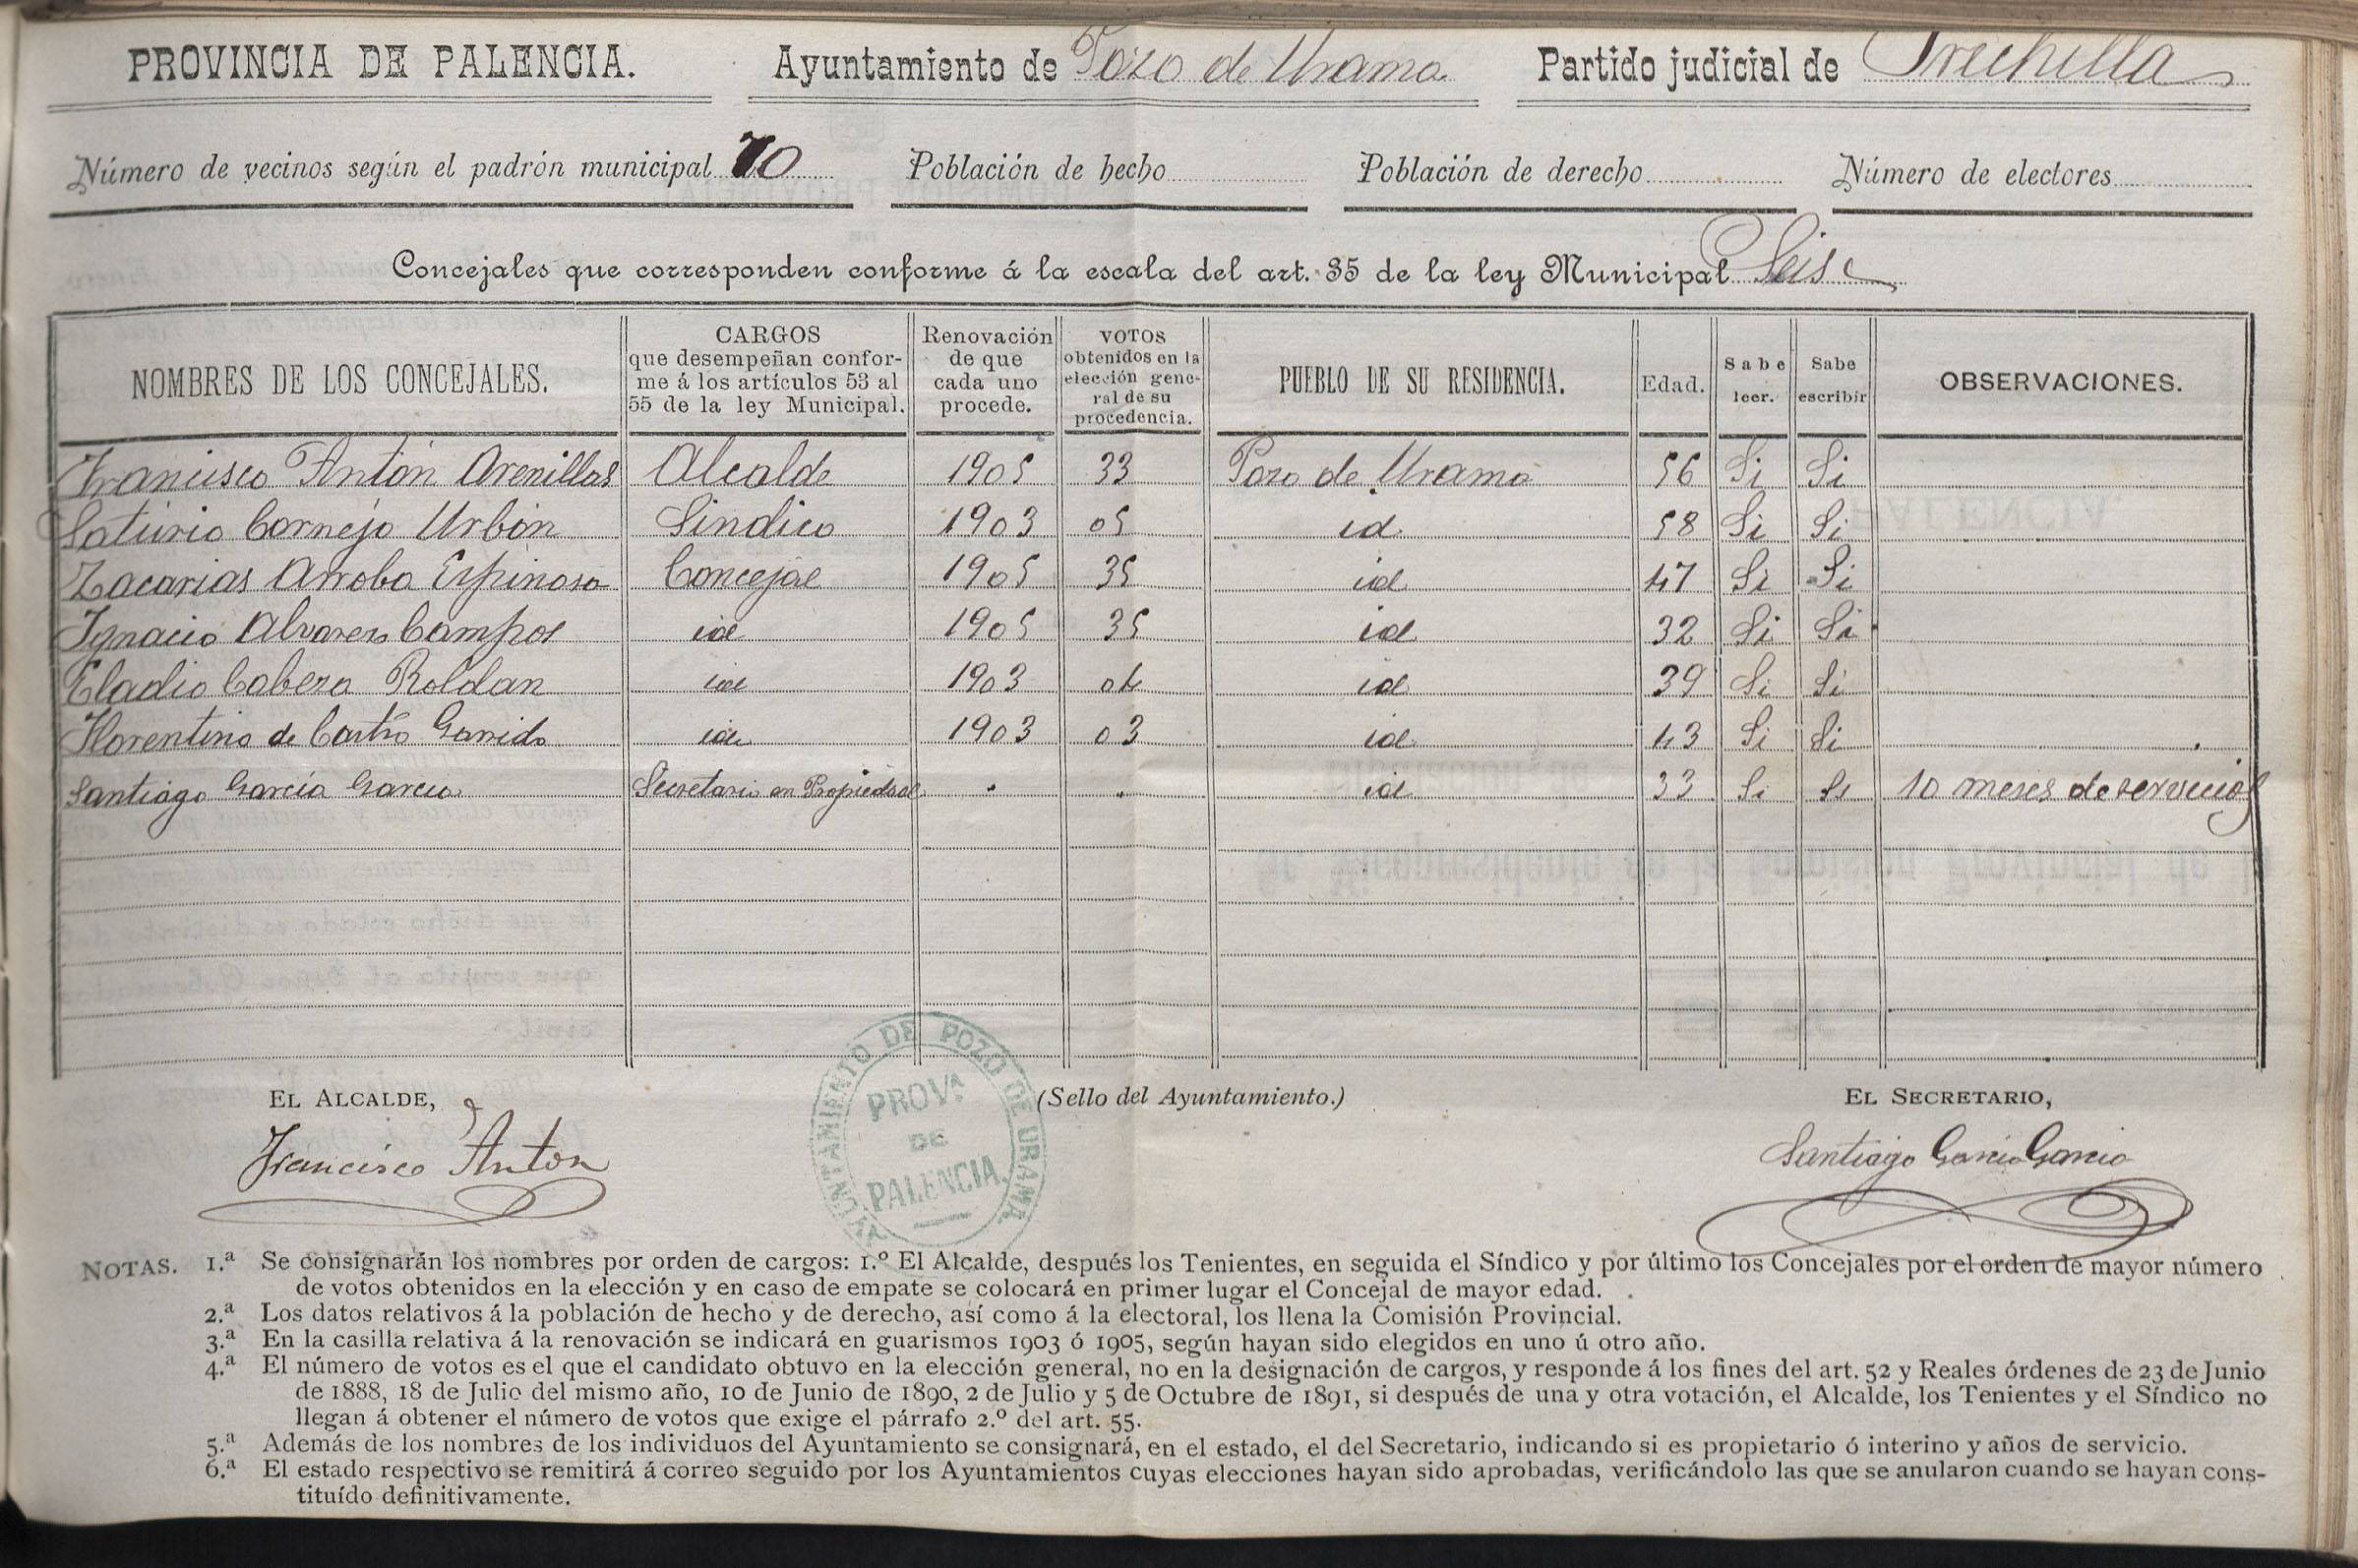 PROVINCIA DE PALENCIA. Ayuntamiento de Pozo de Urama Partido judicial de Frechilla
Número de vecinos según el padrón municipal 70 Población de hecho Población de derecho Número de electores
Concejales que corresponden conforme á la escala del art. 35 de la ley Municipal Seis
NOMBRES DE LOS CONCEJALES. CARGOS que desempeñan confor-me á los artículos 53 al 55 de la ley Municipal. Renovación de que cada uno procede. VOTOS obtenidos en la elección gene-ral de su procedencia. PUEBLO DE SU RESIDENCIA. Edad. Sabe leer. Sabe escribir OBSERVACIONES.
Francisco Antón Arenillas Alcalde 1905 33 Pozo de Urama 56 Si Si
Saturio Cornejo Urbón Sindico 1903 05 id. 58 Si Si
Zacarias Arroba Espinosa Concejal 1905 35 id 47 Si Si
Ignacio Alvarez Campos id 1905 35 id 32 Si Si
Eladio Cabeza Roldan id 1903 04 id 39 Si Si
Florentino de Castro Garrido id 1903 03 id 43 Si Si
Santiago García Garcia Secretario en Propiedad " " id 33 Si Si 10 meses de servicios
EL ALCALDE, (Sello del Ayuntamiento.) EL SECRETARIO,
Francisco Anton Santiago Garcia Garcia
AYUNTAMIENTO DE POZO DE URAMA.
PROV.ª
DE
PALENCIA.
NOTAS. 1.ª Se consignarán los nombres por orden de cargos: 1.º El Alcalde, después los Tenientes, en seguida el Síndico y por último los Concejales por el orden de mayor número
de votos obtenidos en la elección y en caso de empate se colocará en primer lugar el Concejal de mayor edad.
2.ª Los datos relativos á la población de hecho y de derecho, así como á la electoral, los llena la Comisión Provincial.
3.ª En la casilla relativa á la renovación se indicará en guarismos 1903 ó 1905, según hayan sido elegidos en uno ú otro año.
4.ª El número de votos es el que el candidato obtuvo en la elección general, no en la designación de cargos, y responde á los fines del art. 52 y Reales órdenes de 23 de Junio
de 1888, 18 de Julio del mismo año, 10 de Junio de 1890, 2 de Julio y 5 de Octubre de 1891, si después de una y otra votación, el Alcalde, los Tenientes y el Síndico no
llegan á obtener el número de votos que exige el párrafo 2.º del art. 55.
5.ª Además de los nombres de los individuos del Ayuntamiento se consignará, en el estado, el del Secretario, indicando si es propietario ó interino y años de servicio.
6.ª El estado respectivo se remitirá á correo seguido por los Ayuntamientos cuyas elecciones hayan sido aprobadas, verificándolo las que se anularon cuando se hayan cons-
tituído definitivamente.